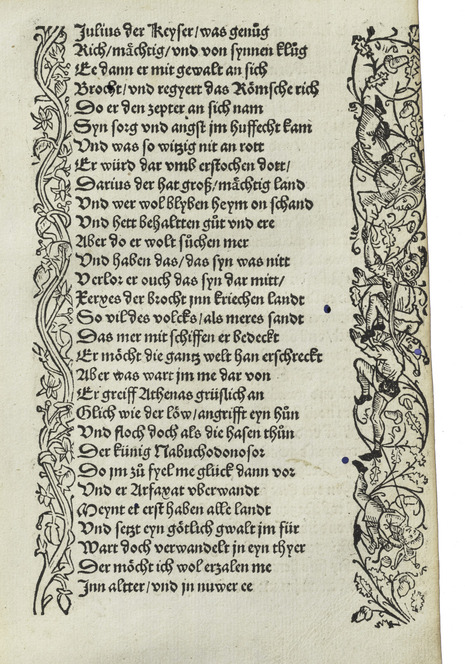 Julius der Keyser/was genůg
Rich/mächtig/vnd von synnen klůg
Ee dann er mit gewalt an sich
Brocht/vnd regyert das Römsche rich
Do er den zepter an sich nam
Syn sorg vnd angst jm huffecht kam
Vnd was so witzig nit an rott
Er würd dar vmb erstochen dott/
Darius der hat groß/mächtig land
Vnd wer wol blyben heym on schand
Vnd hett behaltten gůt vnd ere
Aber do er wolt sůchen mer
Vnd haben das/das syn was nitt
Verlor er ouch das syn dar mitt/
Xerxes der brocht jnn kriechen landt
So vil des volcks/als meres sandt
Das mer mit schiffen er bedeckt
Er möcht die gantz welt han erschreckt
Aber was wart jm me dar von
Er greiff Athenas grüslich an
Glich wie der löw/angrifft eyn hůn
Vnd floch doch als die hasen thůn
Der künig Nabuchodonosor
Do jm zů fyel me glück dann vor
Vnd er Arfaxat vberwandt
Meynt er erst haben alle landt
Vnd setzt eyn götlich gwalt jm für
Wart doch verwandelt jn eyn thyer
Der möcht ich wol erzalen me
Jnn altter/vnd jn nuwer ee